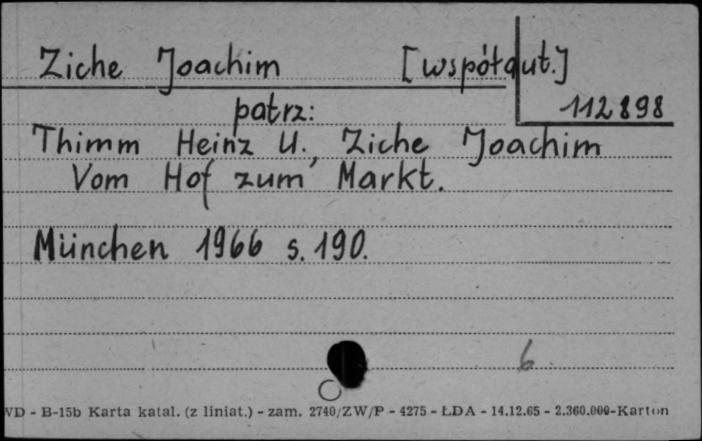 Ziche Joachim [współaut.]
112898
patrz:
Thimm Heinz U., Ziche Joachim
Vom Hof zum Markt.
München 1966 s. 190.
6
VD - B-15b Karta katal. (z liniat.) - zam. 2740/ZW/P - 4275 - ŁDA - 14.12.65 - 2.360.000-Karton